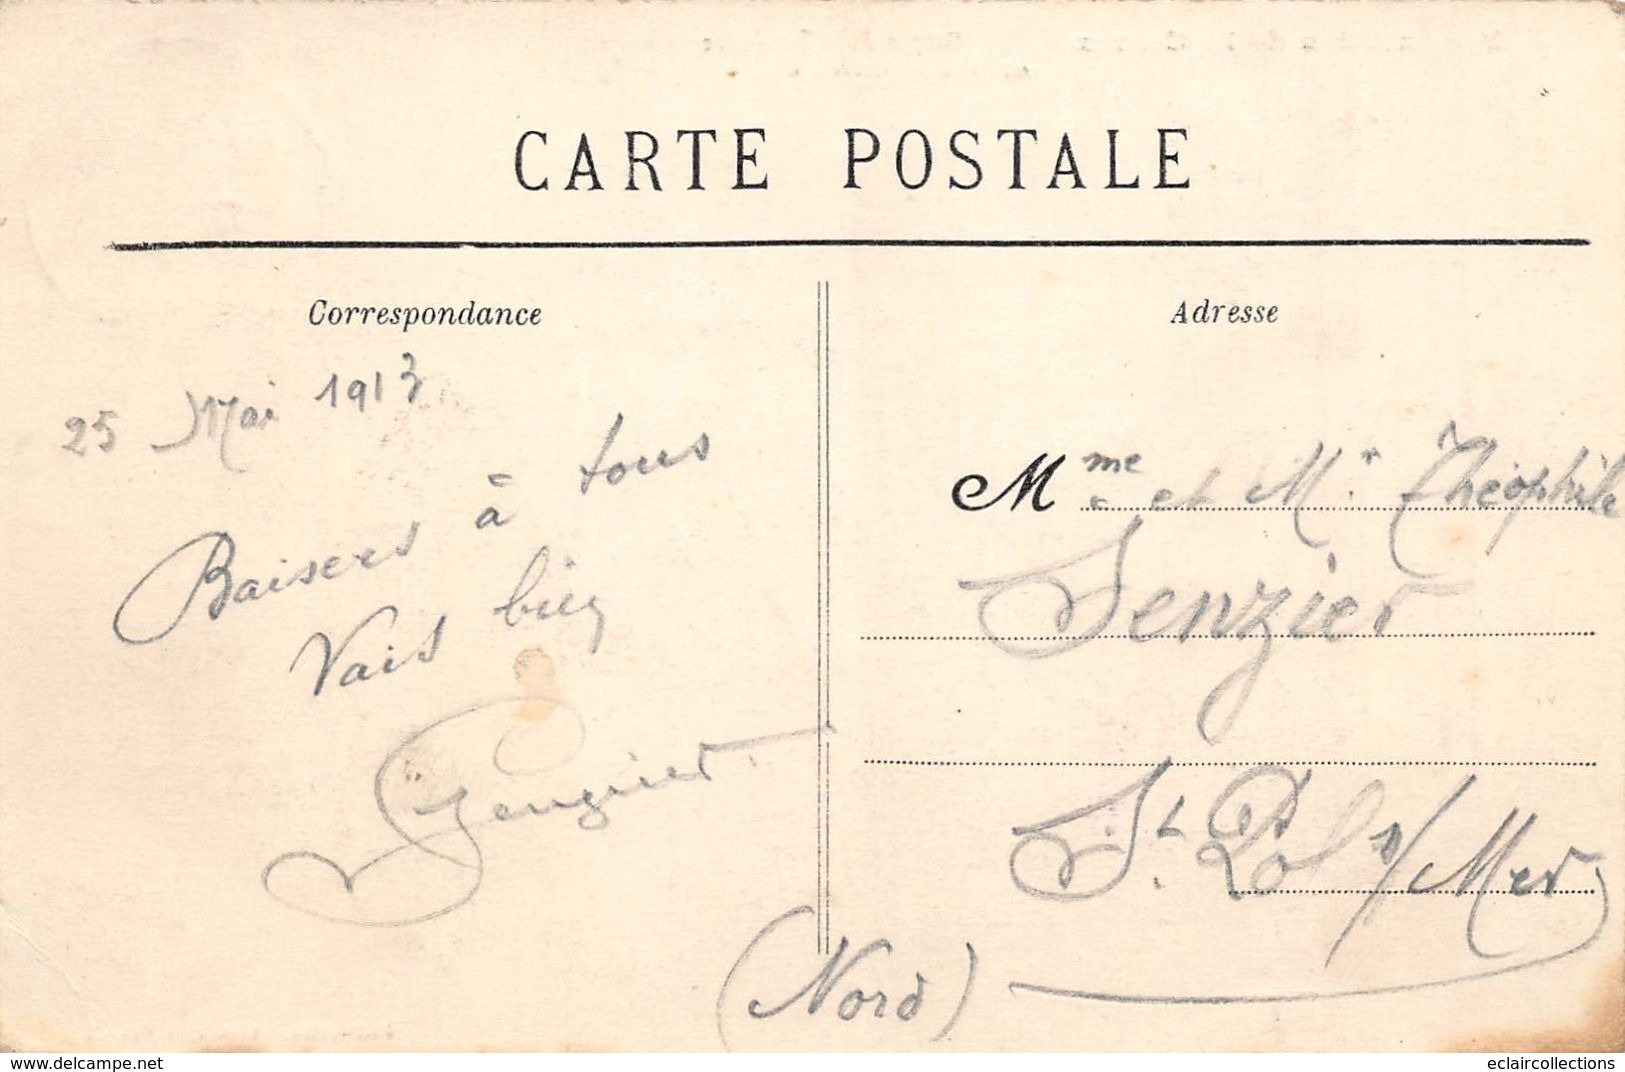 CARTE POSTALE
Correspondance
25 Mai 1913
Baisers à tous
Vais bien
Adresse
Mme et Mr. Théophile
Senzier
St. Pol s/Mer
(Nord)
delcampe.net
eclaircollections